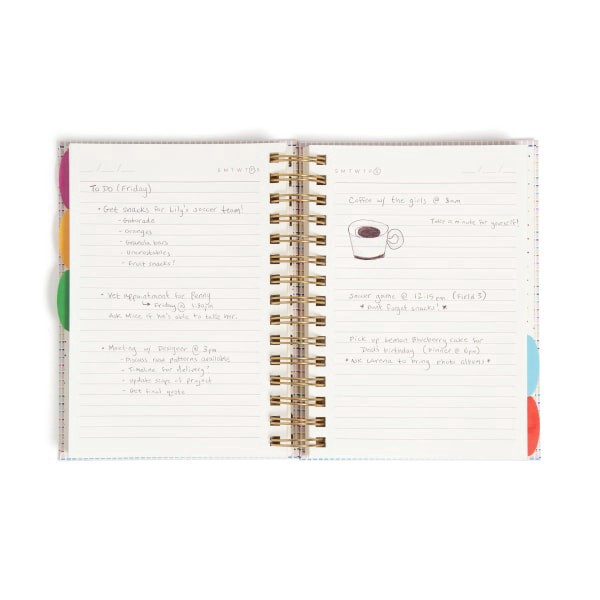 S M T W T F S
TO DO (Friday)
• Get snacks for Lily's soccer team!
- Gatorade
- Oranges
- Granola bars
- Fruit snacks!
• Vet appointment for Penny
↳ Friday @
Ask Mike if he's able to take her.
• Meeting w/ Designer @ 3pm
- Discuss new patterns available
- Timeline for delivery?
- update slips of project
- Get final quote
S M T W T F S
Coffee w/ the girls @ 8am
Take a minute for yourself!
Soccer game @ 12:15pm (Field 3)
* Don't forget snacks! *
Pick up Lemon Blackberry cake for
Dad's birthday (Dinner @ 6pm)
* Ask to bring photo albums *